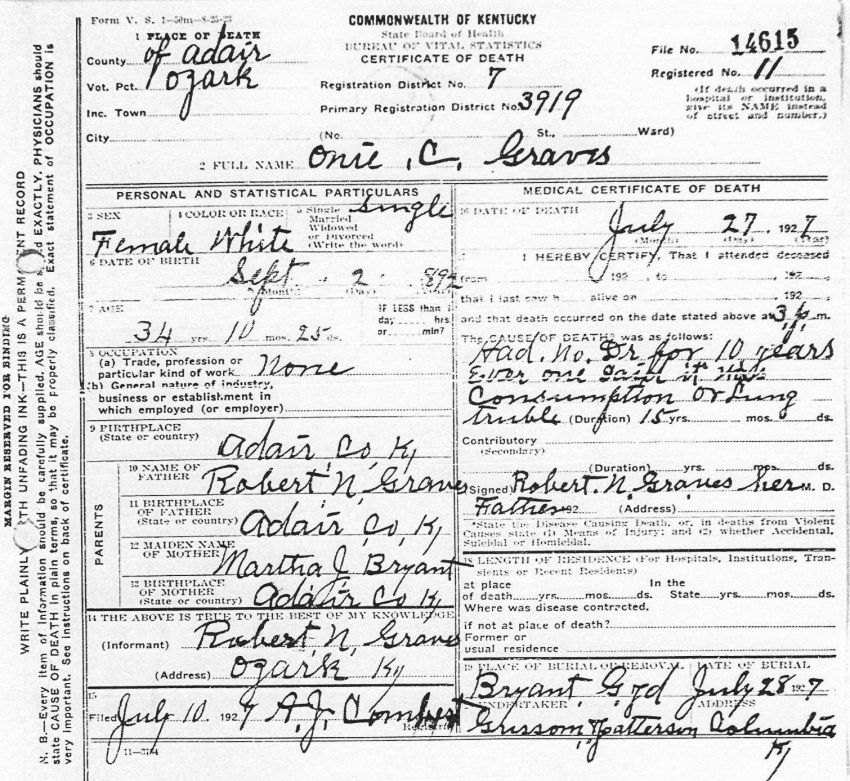 Form V. S. 1—50m—8-25-23
COMMONWEALTH OF KENTUCKY
State Board of Health
BUREAU OF VITAL STATISTICS
CERTIFICATE OF DEATH
1 PLACE OF DEATH
County of Adair
Vot. Pct. Ozark
Inc. Town
City
File No. 14615
Registered No. 11
(If death occurred in a hospital or institution, give its NAME instead of street and number.)
Registration District No. 7
Primary Registration District No. 3919
(No. St., Ward)
2 FULL NAME Onie C. Graves
PERSONAL AND STATISTICAL PARTICULARS
3 SEX Female
4 COLOR OR RACE White
5 Single Married Widowed or Divorced (Write the word) Single
6 DATE OF BIRTH
Sept 2 1892
(Month) (Day)
7 AGE
34 yrs. 10 mos. 25 ds.
IF LESS than 1 day hrs or min?
8 OCCUPATION
(a) Trade, profession or particular kind of work None
(b) General nature of industry, business or establishment in which employed (or employer)
9 BIRTHPLACE
(State or country) Adair Co Ky
PARENTS
10 NAME OF FATHER Robert N, Graves
11 BIRTHPLACE OF FATHER
(State or country) Adair Co, Ky
12 MAIDEN NAME OF MOTHER Martha J Bryant
13 BIRTHPLACE OF MOTHER
(State or country) Adair Co Ky
14 THE ABOVE IS TRUE TO THE BEST OF MY KNOWLEDGE
(Informant) Robert N, Graves
(Address) Ozark Ky
15
Filed July 10 1927 A. J. Combest
Registrar
11—3184
MEDICAL CERTIFICATE OF DEATH
16 DATE OF DEATH
July 27, 1927
(Month) (Day) (Year)
I HEREBY CERTIFY, That I attended deceased
from 192 , to 192 ,
that I last saw h alive on 192 ,
and that death occurred on the date stated above at 3 p m.
The CAUSE OF DEATH* was as follows:
Had. No. Dr for 10 years
Ever one Said it Was
Consumption Or Lung
truble (Duration) 15 yrs. mos. ds.
Contributory
(Secondary)
(Duration) yrs. mos. ds.
(Signed) Robert. N. Graves her M. D.
Father 192 (Address)
*State the Disease Causing Death, or, in deaths from Violent Causes state (1) Means of Injury; and (2) whether Accidental, Suicidal or Homicidal.
18 LENGTH OF RESIDENCE (For Hospitals, Institutions, Transients or Recent Residents)
at place of death yrs. mos. ds. In the State yrs. mos. ds.
Where was disease contracted,
if not at place of death?
Former or
usual residence
19 PLACE OF BURIAL OR REMOVAL
Bryant G yd
DATE OF BURIAL
July 28 1927
UNDERTAKER
Grissom & Patterson
ADDRESS
Columbia Ky
MARGIN RESERVED FOR BINDING
WRITE PLAINLY WITH UNFADING INK—THIS IS A PERMANENT RECORD
N. B.—Every item of information should be carefully supplied. AGE should be stated EXACTLY. PHYSICIANS should
state CAUSE OF DEATH in plain terms, so that it may be properly classified. Exact statement of OCCUPATION is
very important. See instructions on back of certificate.